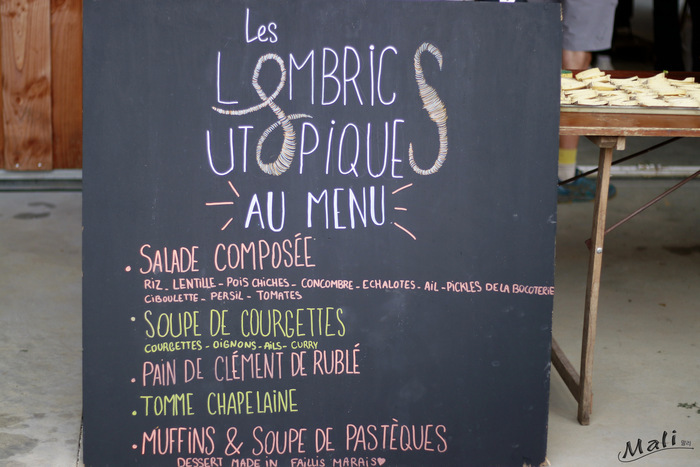 Les
LOMBRICS
UTOPIQUES
AU MENU
• SALADE COMPOSÉE
RIZ - LENTILLE - POIS CHICHES - CONCOMBRE - ECHALOTES - AIL - PICKLES DE LA BOCOTERIE
CIBOULETTE - PERSIL - TOMATES
• SOUPE DE COURGETTES
COURGETTES - OIGNONS - AILS - CURRY
• PAIN DE CLÉMENT DE RUBLÉ
• TOMME CHAPELAINE
• MUFFINS & SOUPE DE PASTÈQUES
DESSERT MADE IN FAILLIS MARAIS ♥
Mali